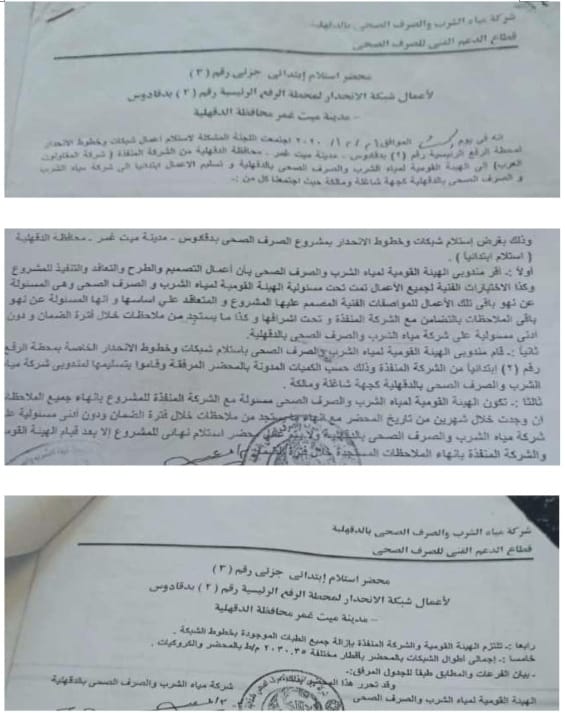 شركة مياه الشرب والصرف الصحى بالدقهلية
قطاع الدعم الفنى للصرف الصحى
محضر استلام إبتدائى جزئى رقم (٣)
لأعمال شبكة الانحدار لمحطة الرفع الرئيسية رقم (٢) بدقادوس
– مدينة ميت غمر محافظة الدقهلية
انه فى يوم الموافق / / ٢٠٢٠ اجتمعت اللجنة المشكلة لاستلام أعمال شبكات وخطوط الانحدار
لمحطة الرفع الرئيسية رقم (٢) بدقادوس - مدينة ميت غمر - محافظة الدقهلية من الشركة المنفذة ( شركة المقاولون
العرب) الى الهيئة القومية لمياه الشرب والصرف الصحى بالدقهلية و تسليم الاعمال ابتدائيا الى شركة مياه الشرب
و الصرف الصحى بالدقهلية كجهة شاغلة ومالكة حيث اجتمعنا كل من :-
وذلك بغرض إستلام شبكات وخطوط الانحدار بمشروع الصرف الصحى بدقادوس - مدينة ميت غمر - محافظة الدقهلية
( استلام ابتدائيا ) .
أولاً :- أقر مندوبى الهيئة القومية لمياه الشرب والصرف الصحى بأن أعمال التصميم والطرح والتعاقد والتنفيذ للمشروع
وكذا الاختبارات الفنية لجميع الأعمال تمت تحت مسئولية الهيئة القومية لمياه الشرب و الصرف الصحى وهى المسئولة
عن نهو باقى تلك الأعمال للمواصفات الفنية المصمم عليها المشروع و المتعاقد على اساسها و انها المسئولة عن نهو
باقى الملاحظات بالتضامن مع الشركة المنفذة و تحت اشرافها و كذا ما يستجد من ملاحظات خلال فترة الضمان و دون
أدنى مسئولية على شركة مياه الشرب والصرف الصحى بالدقهلية.
ثانياً :- قام مندوبى الهيئة القومية لمياه الشرب والصرف الصحى باستلام شبكات وخطوط الانحدار الخاصة بمحطة الرفع
رقم (٢) ابتدائيا من الشركة المنفذة وذلك حسب الكميات المدونة بالمحضر المرفقة وقاموا بتسليمها لمندوبى شركة مياه
الشرب والصرف الصحى بالدقهلية كجهة شاغلة ومالكة .
ثالثا :- تكون الهيئة القومية لمياه الشرب والصرف الصحى مسئولة مع الشركة المنفذة للمشروع بإنهاء جميع الملاحظات
ان وجدت خلال شهرين من تاريخ المحضر مع انهاء ما يستجد من ملاحظات خلال فترة الضمان ودون أدنى مسئولية على
شركة مياه الشرب والصرف الصحى بالدقهلية ولا يتم محضر استلام نهائى للمشروع إلا بعد قيام الهيئة القومية
والشركة المنفذة بانهاء الملاحظات المستجدة خلال فترة الضمان
شركة مياه الشرب والصرف الصحى بالدقهلية
قطاع الدعم الفنى للصرف الصحى
محضر استلام إبتدائى جزئى رقم (٣)
لأعمال شبكة الانحدار لمحطة الرفع الرئيسية رقم (٢) بدقادوس
– مدينة ميت غمر محافظة الدقهلية
رابعا :- تلتزم الهيئة القومية والشركة المنفذة بإزالة جميع الطبات الموجودة بخطوط الشبكة .
خامسا :- إجمالى أطوال الشبكات بالمحضر بأقطار مختلفة ٢٠٣٠.٣٥ م/ط بالمحضر والكروكيات .
- بيان الفرعات والمطابق طبقا للجدول المرفق:-
وقد تحرر هذا المحضر
الهيئة القومية لمياه الشرب و الصرف الصحى
شركة مياه الشرب والصرف الصحى بالدقهلية